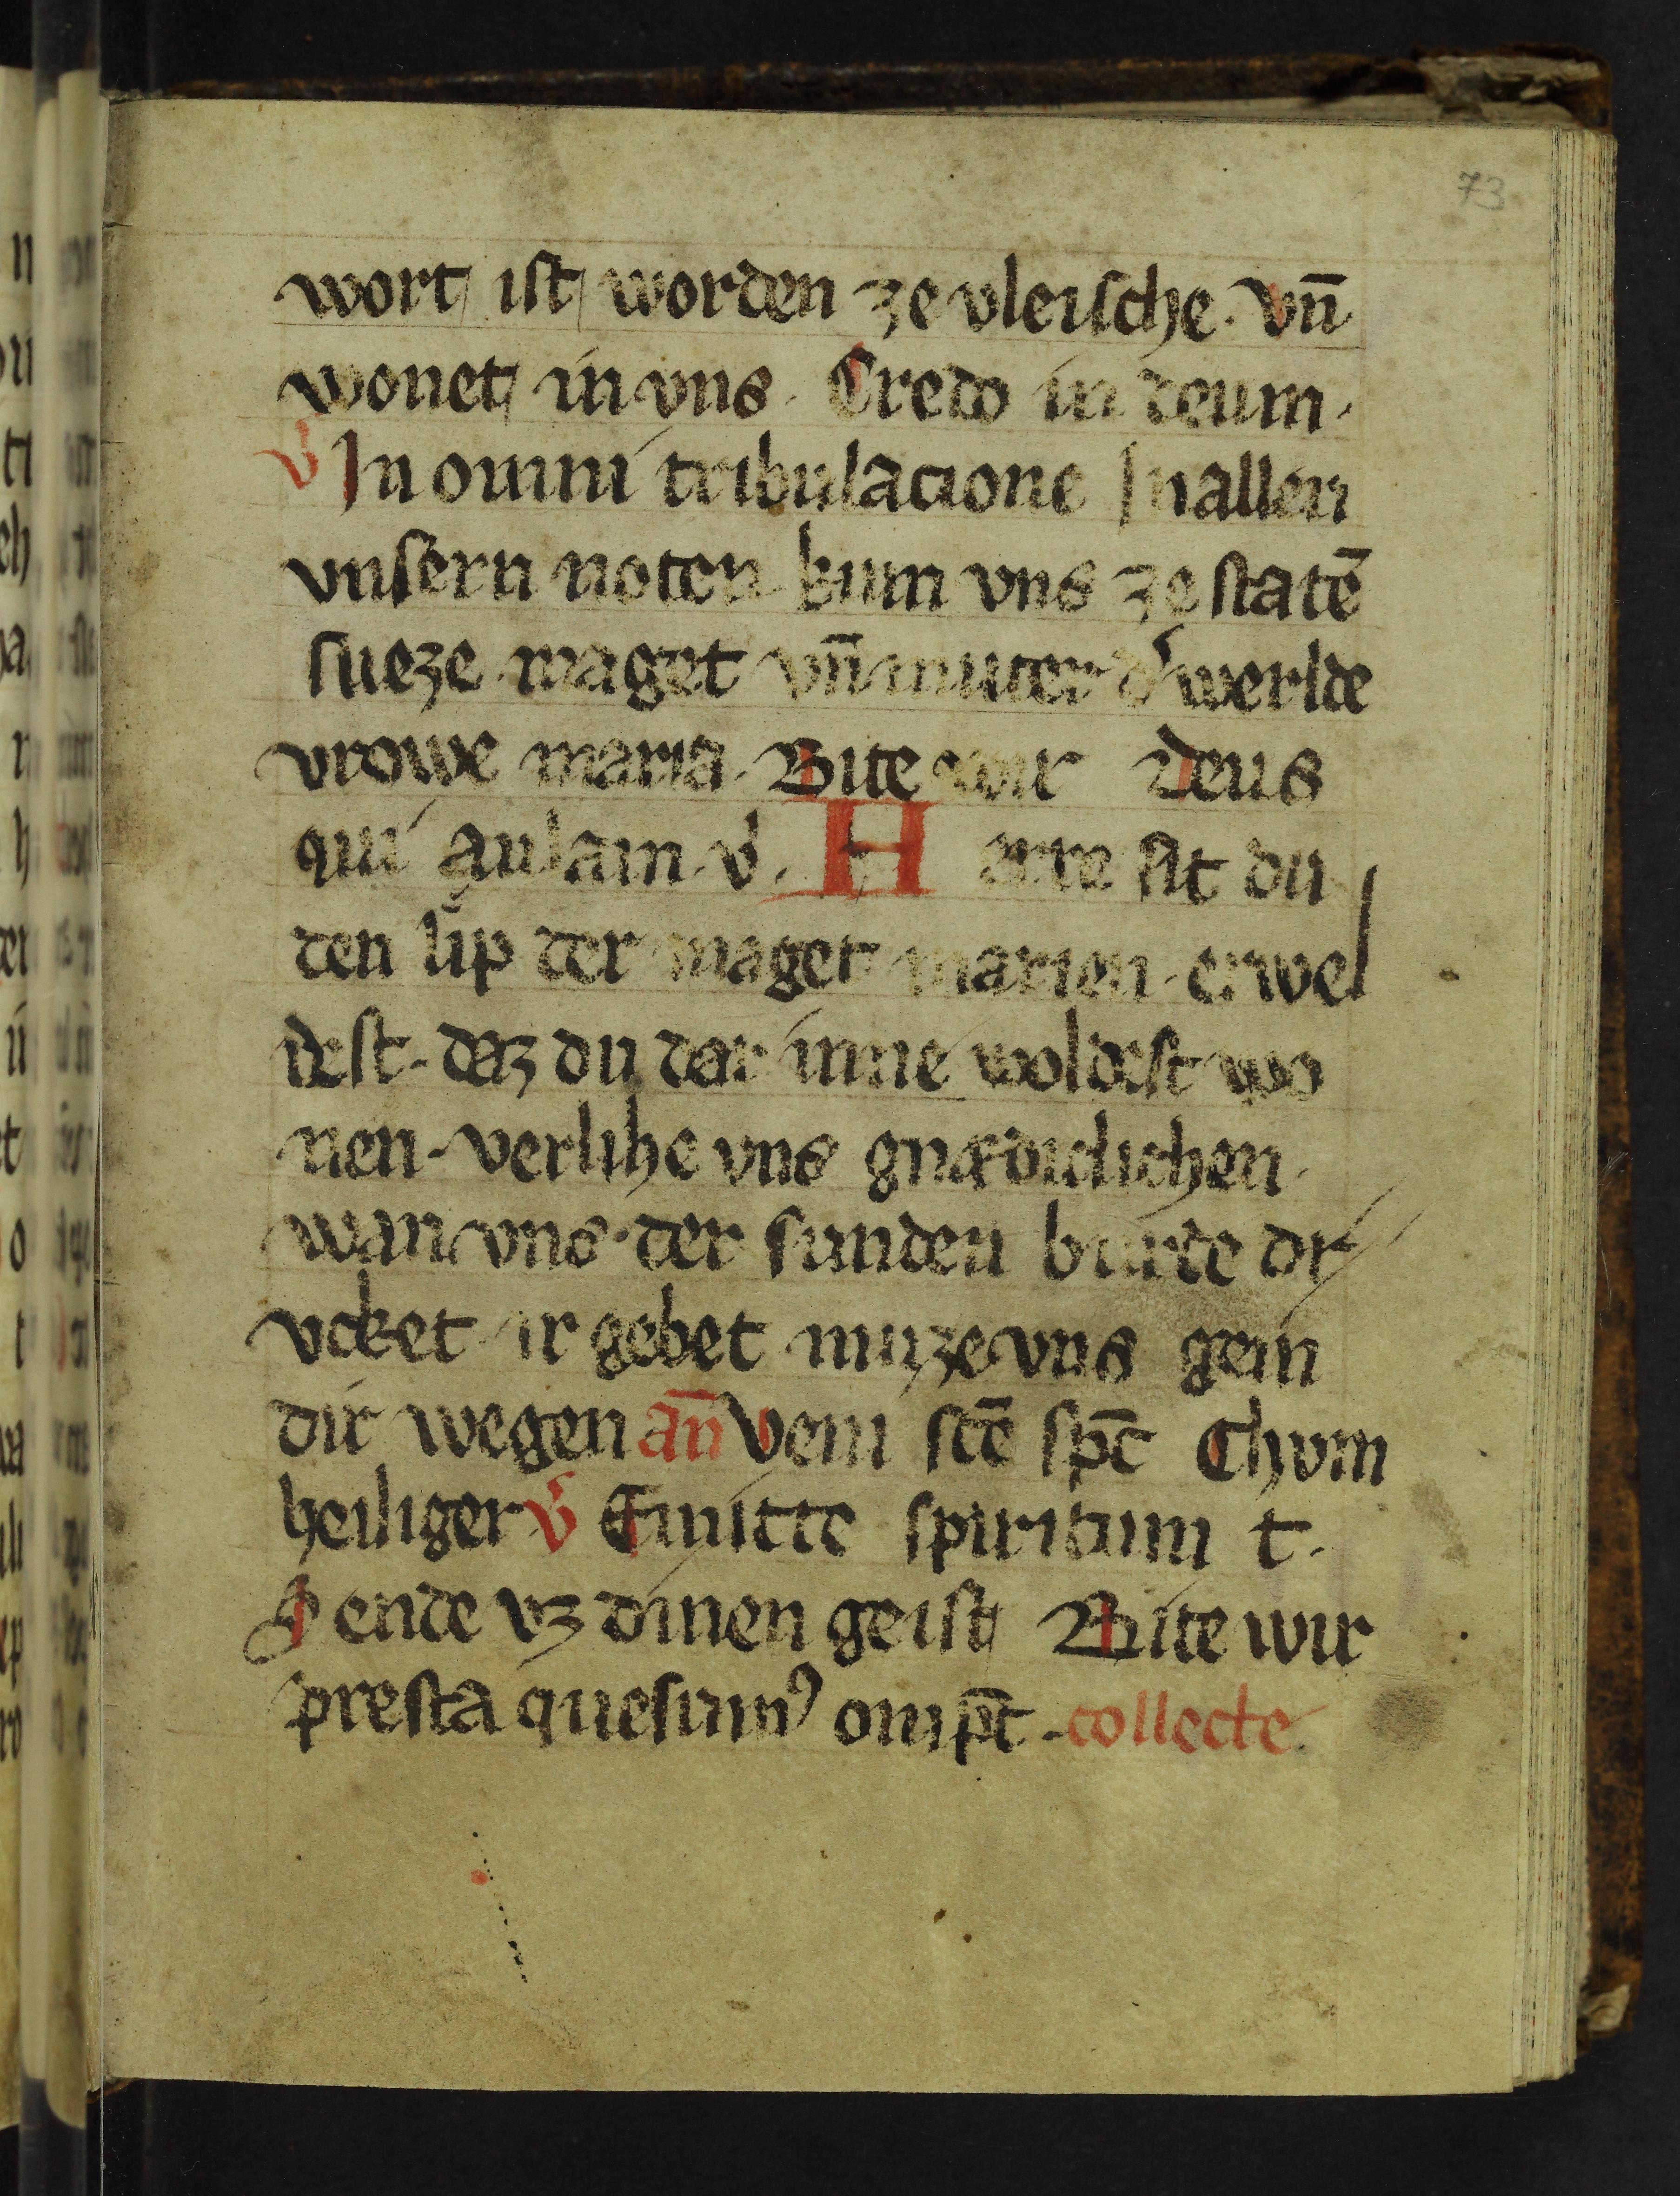 73
wort ist worden ze vleische. vn̄
wonet in vns. Credo in deum.
V In omni tribulacione In allen
vnsern noten kum vns ze statē
sueze maget vn̄ muter d͛ werlde
vrowe maria. Bite wir Deus
qui aulam. v. H erre sit du
den lip der maget marien erwel
dest. daz du dar inne woldest wo
nen. verlihe vns gnædiclichen.
wan vns der sunden burde dr
vcket ir gebet muze vns gein
dir wegen an̄ Veni sctē spc̄ Chvm
heiliger V Emitte spiritum t.
Sende vz dinen geist Bite wir
presta quesumꝰ omp̄t. collecte.